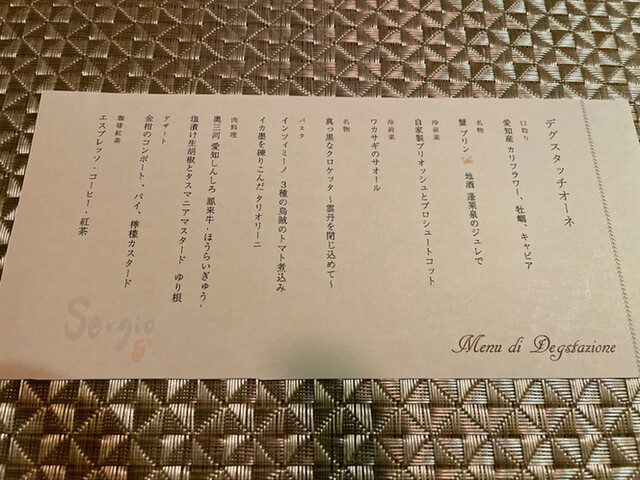 デグスタッチオーネ
口取り
愛知産 カリフラワー、牡蠣、キャビア
名物
蟹プリン 地酒 蓬莱泉のジュレで
冷前菜
自家製ブリオッシュとプロシュートコット
冷前菜
ワカサギのサオール
名物
真っ黒なクロケッタ 〜雲丹を閉じ込めて〜
パスタ
インツィミーノ 3種の烏賊のトマト煮込み
イカ墨を練りこんだ タリオリーニ
肉料理
奥三河 愛知しんしろ 鳳来牛・ほうらいぎゅう・
塩漬け生胡椒とタスマニアマスタード ゆり根
デザート
金柑のコンポート、パイ、檸檬カスタード
珈琲 紅茶
エスプレッソ・コーヒー・紅茶
Sergio
Menu di Degstazione